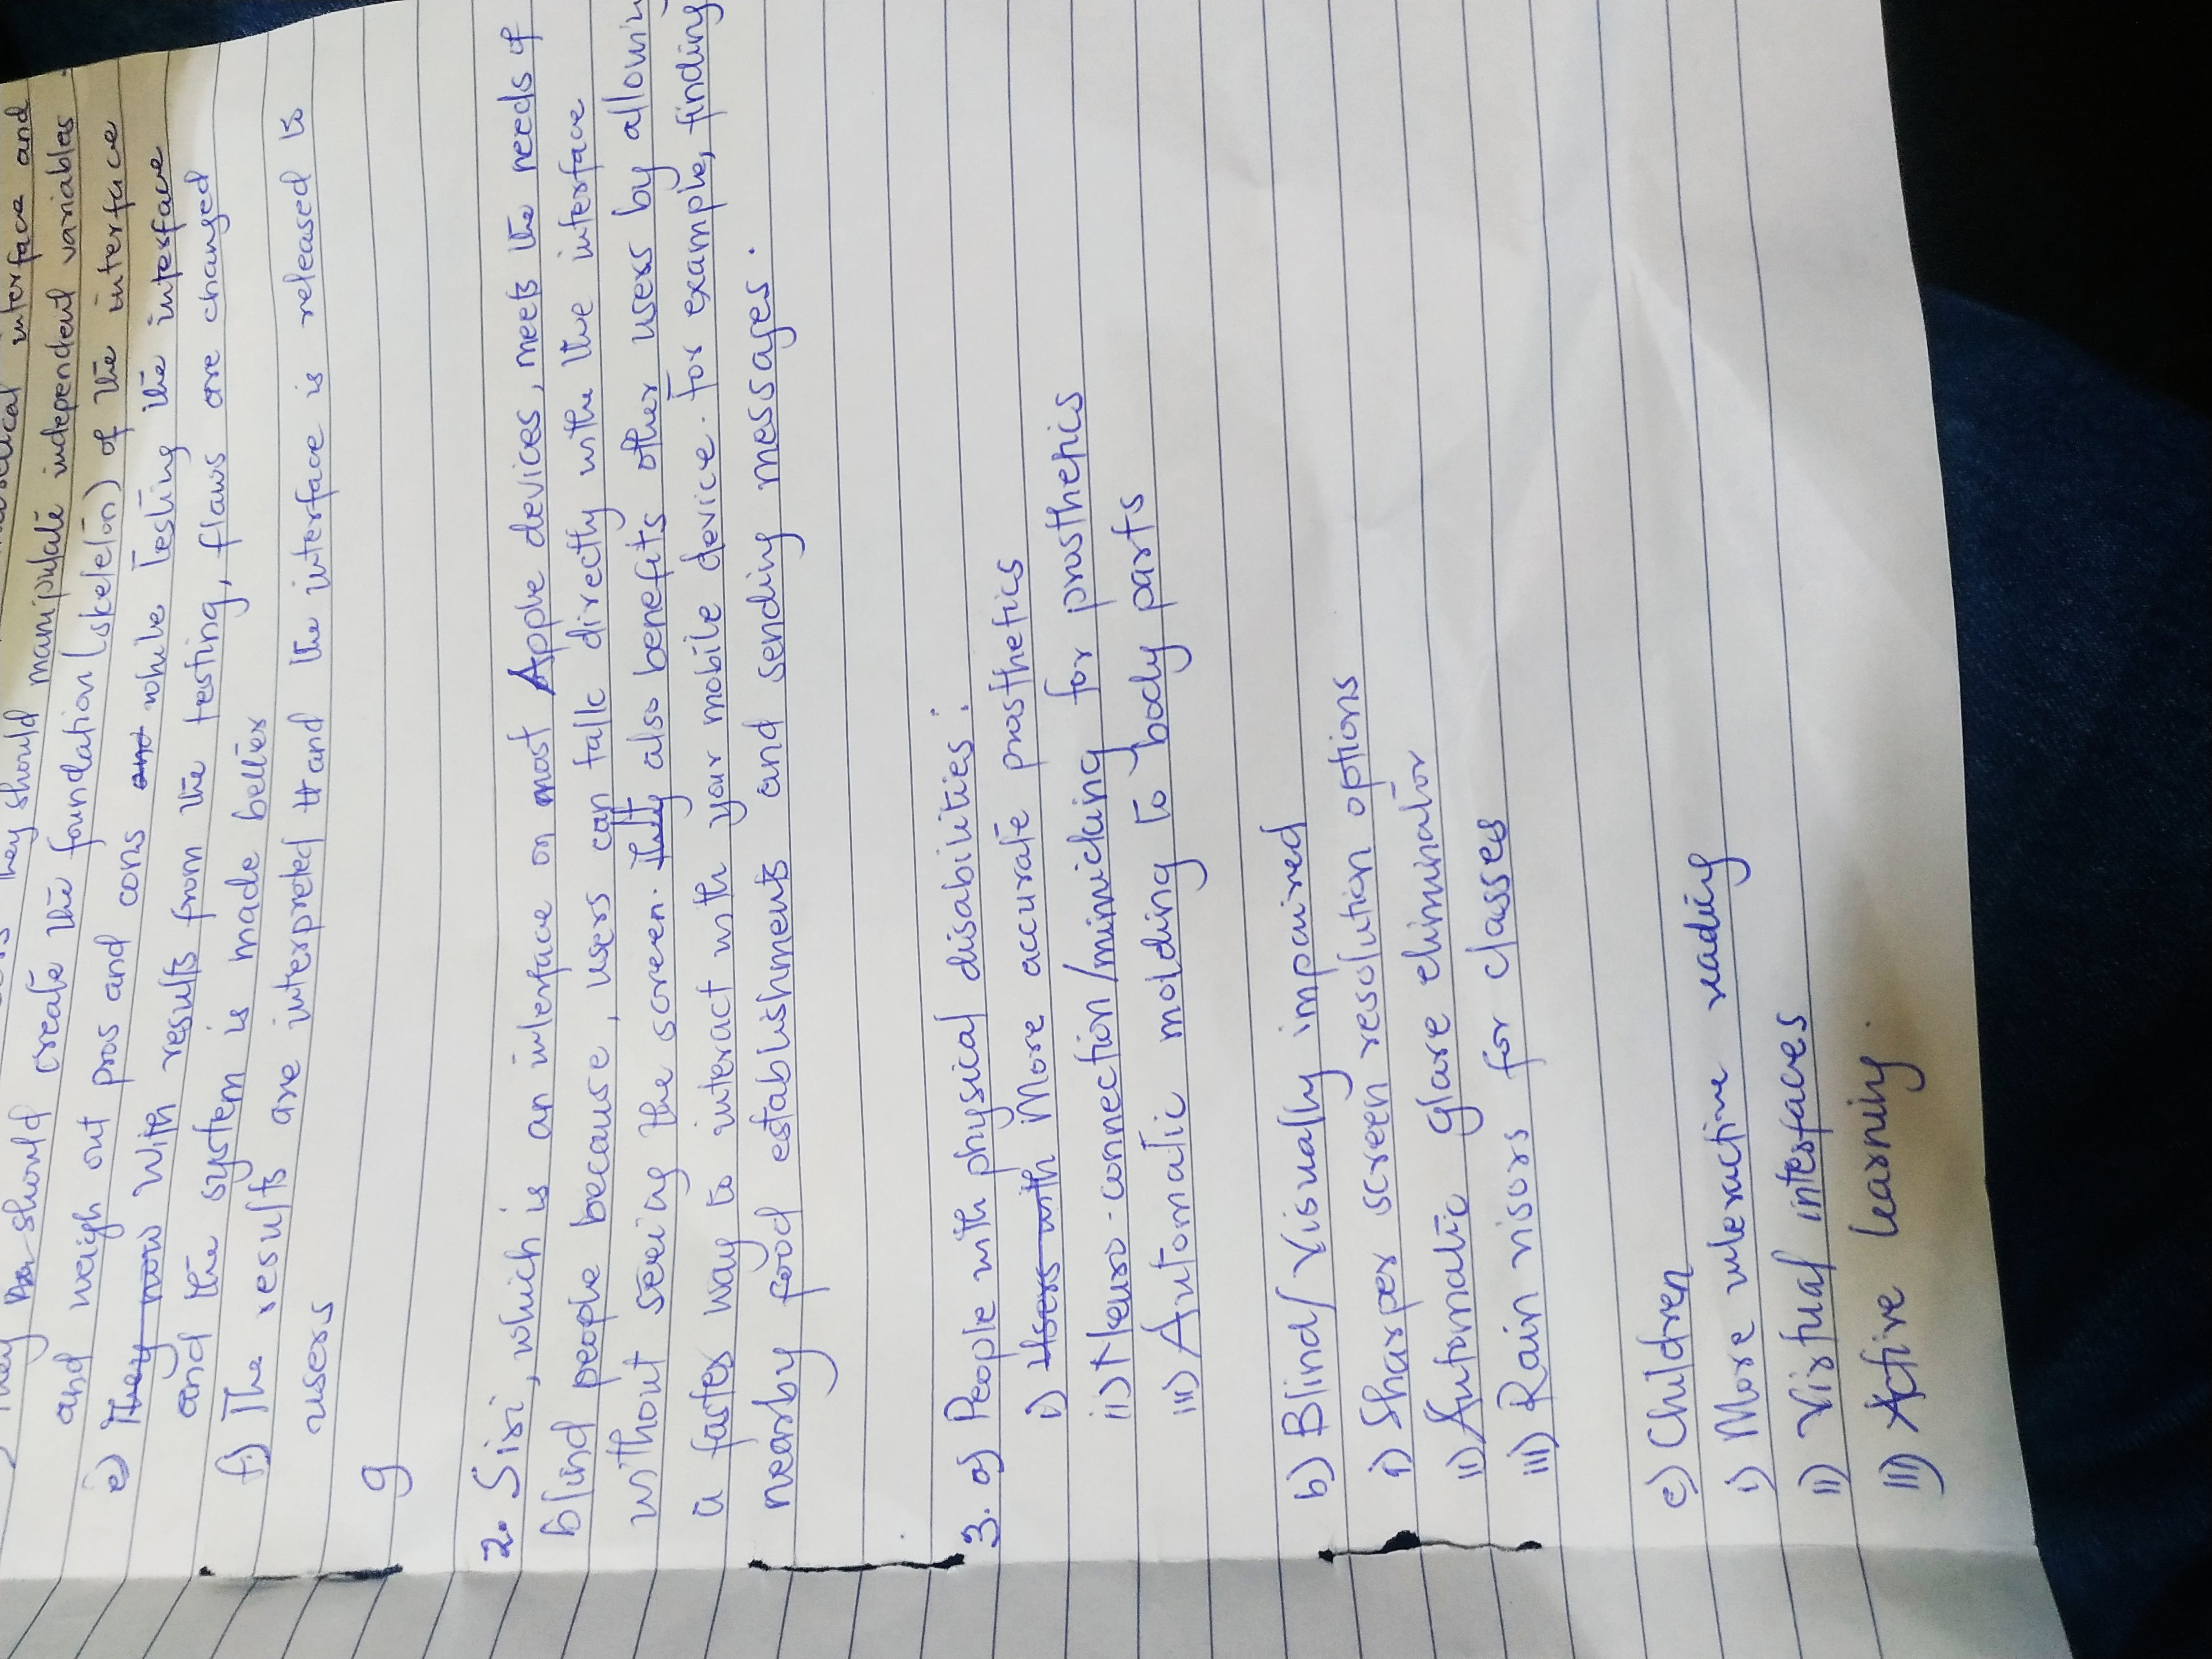 they should
interface and
They should create the
manipulate independent variables
foundation (skeleton) of the interface
and weigh out pros and cons and while testing the interface
e) They now With results from the testing, flaws are changed
and the system is made better
f) The results are interpreted and the interface is released to
users
g
2. Siri, which is an interface on most Apple devices, meets the needs of
blind people because, users can talk directly withe the interface
without seeing the screen. It also benefits other users by allowin
a faster way to interact with your mobile device. For example, finding
nearby food establishments and sending messages.
3. a) People with physical disabilities:
i) Users with More accurate prosthetics
ii) Neuro-connection/mimicking for prosthetics
iii) Automatic molding to body parts
b) Blind/Visually impaired
i) Sharper screen resolution options
ii) Automatic glare eliminator
iii) Rain visors for classes
c) Children
i) More interactive reading
ii) Virtual interfaces
iii) Active learning.